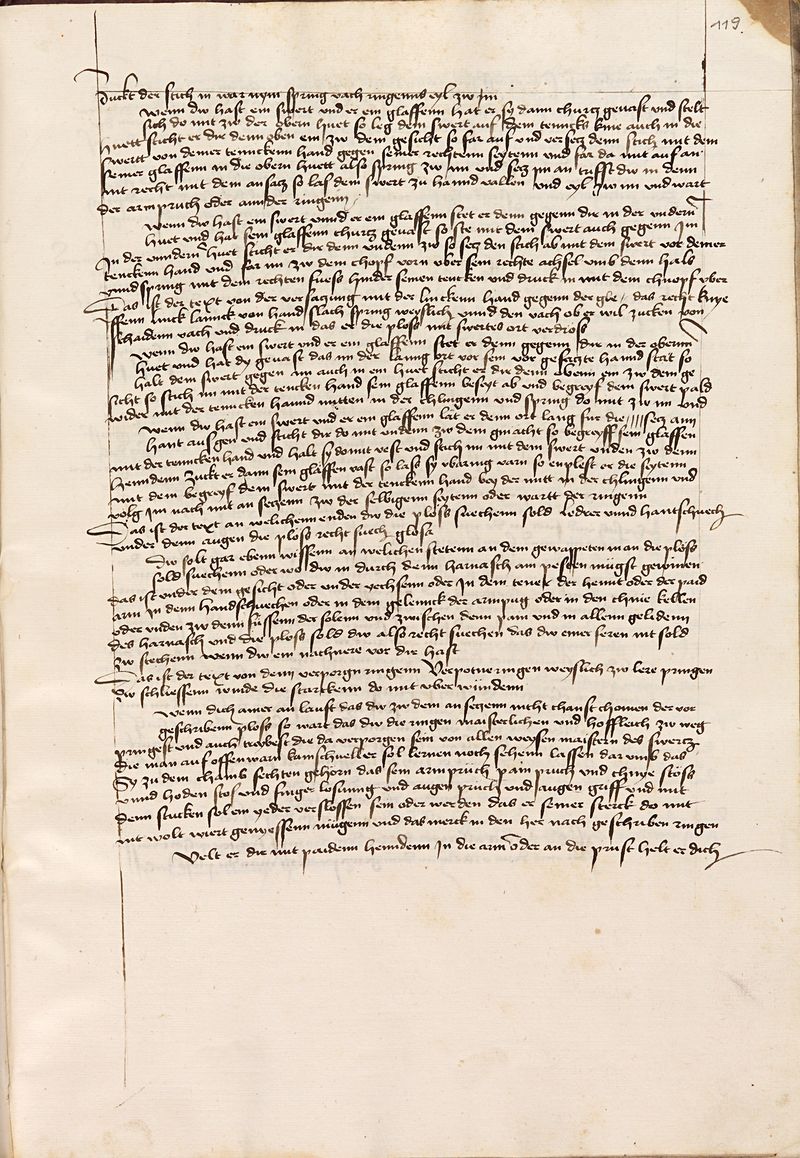 119
Zuckt der stich in war nym spring nach ringenns eyl zw Im
Wenn dw hast ein swert und er ein glaffenn hat er sy dann churcz gevast und stelt
sich do mit zw der obern huet so leg dein swert auf dein tenncks knie auch in die
huett sticht er dir denn oben ein zw dem gesicht so far auf und versecz denn stich mit dem
swertt von deiner tennckenn hand gegen seiner rechtenn seytenn und far da mit auf an
seiner glaffenn in die obern huett also spring zw im und secz im an triffst dw in denn
nit recht mit dem ansacz so las dein swert zu hannd vallen und eyl zw im und wart
der armpruch oder annder ringenn
Wenn dw hast ein swert unnd er ein glaffenn stet er denn gegenn dir in der undernn
huet und hat sein glaffenn churcz gevast so ste mit dem swert auch gegenn Im
In der unndernn huet sticht er dir denn undenn zw so secz den stich ab mit dem swert vor deiner
tenckenn hand und far im zw dem chopf vorn uber sein rechte achsel umb denn hals
unnd spring mit dem rechten fuess hinder seinen tencken und druck in mit dem chnopf uber
Das ist der text von der versaczung mit der linckenn hand gegenn der gle/ das recht knye
ffenn linck lannck von hand slach spring weyslich unnd den vach ob er wil zucken von
schaidenn vach und druck in das er die ploss mit swertes ort verdross
Wenn dw hast ein swert und er ein glaffenn stet er denn gegenn dir in der obernn
huet und hat dy gevast das im der lanng ort vor sein vor gesaczte hannd stat so
halt dein swert gegen im auch in ein huet sticht er dir denn obenn ein zw dem ge
sicht so stich im mit der tencken hand sein glaffenn beseyt ab und begreyf dein swert pald
wider mit der tenncken hannd mitten in der chlingenn und spring do mit zw im und
Wenn dw hast ein swert und er ein glaffenn lat er denn ort lang fur die //// secz ann
hant ausgen und sticht dir do mit undenn zw dem gmacht so begreyff sein glaffen
mit der tenncken hand und halt sy domit vest und stich im mit dem swert unden zw denn
henndenn zuckt er dann sein glaffen vast so lass sy varn so enplest er die seytenn
mit dem begreyf dein swert mit der tenckenn hand bey der mitt in der chlingenn und
volg im nach mit an seczenn zw der selbigenn seytenn oder wartt der ringenn
Das ist der text an welichenn enden dw die ploss suechenn sold Ledrer unnd hantschuech
under denn augen die ploss recht suech glosa
Dw solt gar ebenn wissenn an welichen stetenn an dem gewappeten man die ploss
sold suechenn oder wo dw in durch denn harnasch am pesten mügst gewinen
das ist under dem gesicht oder under yechsenn oder In dem tener der hennt oder der paid
arm in denn handschuechen oder in dem gelennck der armpug oder in den chnie kellen
oder unden zw denn füssenn der solnn und zwischen denn pain und in allenn gelidenn
des harnasch und die ploss sold dw also recht suechen das dw einer feren nit sold
zw stechenn wenn dw ein nachnere vor dir hast
Das ist der text von denn verporgn ringenn Verpotne ringen weyslich zw lere pringen
zw schliessenn vinde die starckenn do mit uber winndenn
Wenn dich ainer an lauft das dw zw dem an seczenn nicht chanst chomen der vor
geschribenn ploss so wart das dw die ringen maisterlichen und hoffleich zw weg
pringest und auch treybest die da verporgen sein von allen weysen maistern des swercz
die man auf offenn kainschueller sol lernen noch sehenn lassen dar umb das
Sy zu dem champf fechten gehörn das sein armprüch pain pruch und chnye stöss
unnd hoden stos und finger losunng und augen pruch und augen griff und mit
denn stucken sol ein yeder verslossen sein oder werden das er seiner sterck do mit
nit wolt wiert genyessenn mügenn und das merck in den her nach geschriben ringen
Velt er dir mit paidenn henndenn In die arm oder an die prust helt er dich